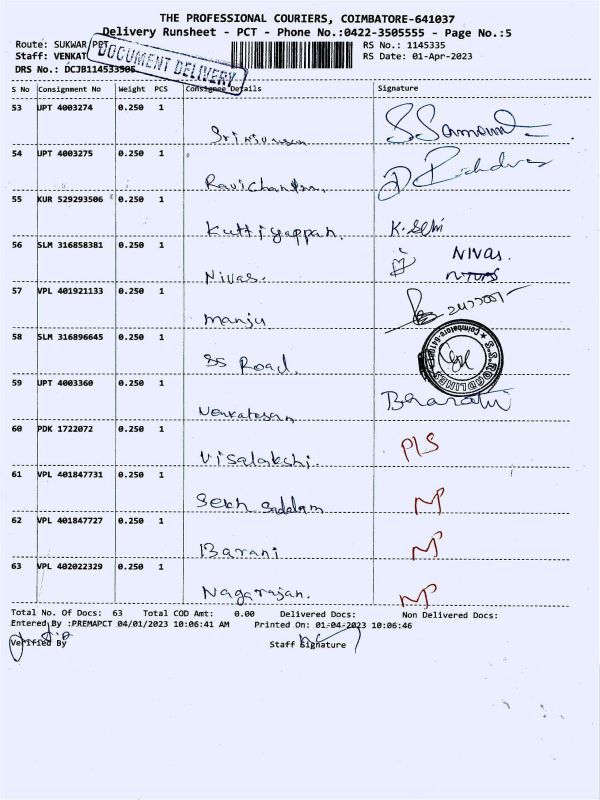 THE PROFESSIONAL COURIERS, COIMBATORE-641037
Delivery Runsheet - PCT - Phone No.:0422-3505555 - Page No.:5
Route: SUKWAR PET
RS No.: 1145335
Staff: VENKAT
RS Date: 01-Apr-2023
DOCUMENT DELIVERY
DRS No.: DCJB114533505
S No Consignment No Weight PCS Consignee Details Signature
53 UPT 4003274 0.250 1
Srinivasan
54 UPT 4003275 0.250 1
Ravichandran.
55 KUR 529293506 0.250 1
Kuttiyappan. K. Selvi
56 SLM 316858381 0.250 1
Nivas. NIVAS.
57 VPL 401921133 0.250 1
Manju
58 SLM 316896645 0.250 1
SS Road.
S.S. ROADLINES
59 UPT 4003360 0.250 1
Venkatesan Bharathi
60 PDK 1722072 0.250 1
Visalakshi. PLS
61 VPL 401847731 0.250 1
Sekh Saddam NP
62 VPL 401847727 0.250 1
Barani NP
63 VPL 402022329 0.250 1
Nagarajan. NP
Total No. Of Docs: 63 Total COD Amt: 0.00 Delivered Docs: Non Delivered Docs:
Entered By :PREMAPCT 04/01/2023 10:06:41 AM Printed On: 01-04-2023 10:06:46
Verified By Staff Signature